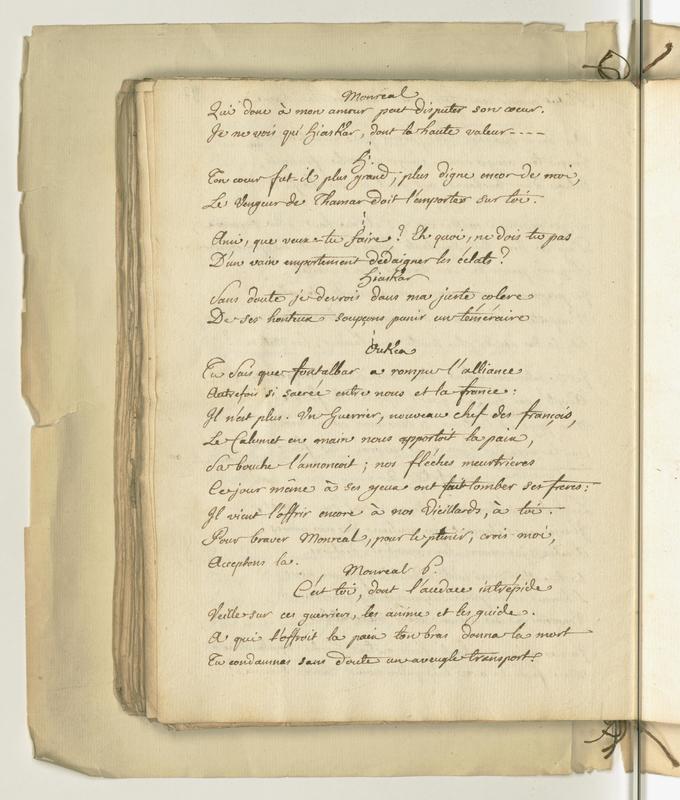 Monreal
Qui donc à mon amour peut disputer son coeur.
Je ne vois qu'hiaskar, dont la haute valeur----
h.
Ton coeur fut-il plus grand, plus digne encor de moi,
Le Vengeur de Thamar doit l'emporter sur toi.
Ami, que veux-tu faire? Eh quoi, ne dois tu pas
D'un vain emportement dédaigner les éclats?
hiaskar
Sans doute je devrois dans ma juste colere
De ses honteux soupçons punir un téméraire
Oukea
Tu Sais que fontalbar a rompu l'alliance
Autrefois si sacrée entre nous et la france:
Il n'est plus. Un Guerrier, nouveau chef des françois,
Le Calumet en main nous apportoit la paix,
Sa bouche l'annoncoit; nos fléches meurtrieres
Ce jour même à ses yeux ont fait tomber ses freres:
Il vient l'offrir encore à nos Vieillards, à toi.
Pour braver Monréal, pour le punir, crois moi,
Acceptons la.
Monreal
C'est toi, dont l'audace intrépide
Veille sur ces guerriers, les anime et les guide.
A qui l'offroit la paix ton bras donna la mort
Tu condamnas sans doute un aveugle transport.